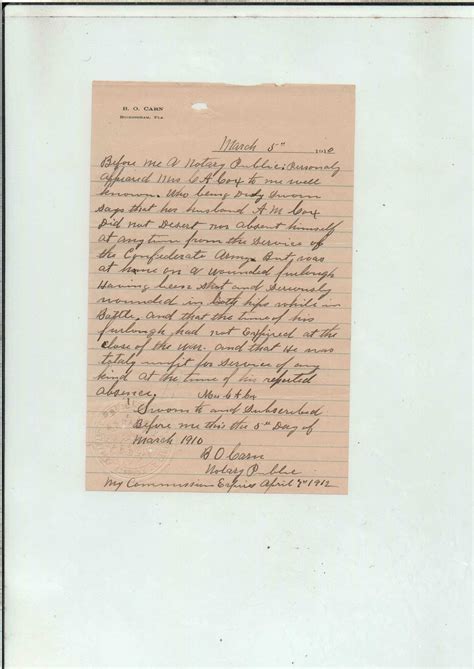 B. O. CARN
BUCKINGHAM, FLA
March 5th 1910
Before me a Notary Public; Personaly
appeared Mrs C A Cox to me well
known. Who being Duly Sworn
says that her husband A. M. Cox
Did not Desert nor absent himself
at any time from the Service of
the Confederate Army. But, was
at home on a wounded furlough
Having been Shot and Seriously
wounded in both hips while in
Battle. and that the time of his
furlough had not Expired at the
close of the War. and that He was
totaly unfit for Service of any
kind at the time of his reported
absence.
Mrs C A Cox
Sworn to and Subscribed
Before me this the 5th Day of
March 1910
B O Carn
Notary Public
My Commission Expires April 1912